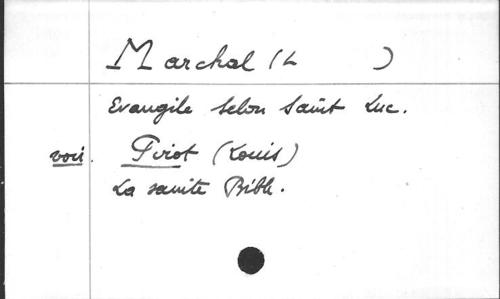 Marchal (L )
Evangile selon Saint Luc.
voir. Pirot (Louis)
La sainte Bible.